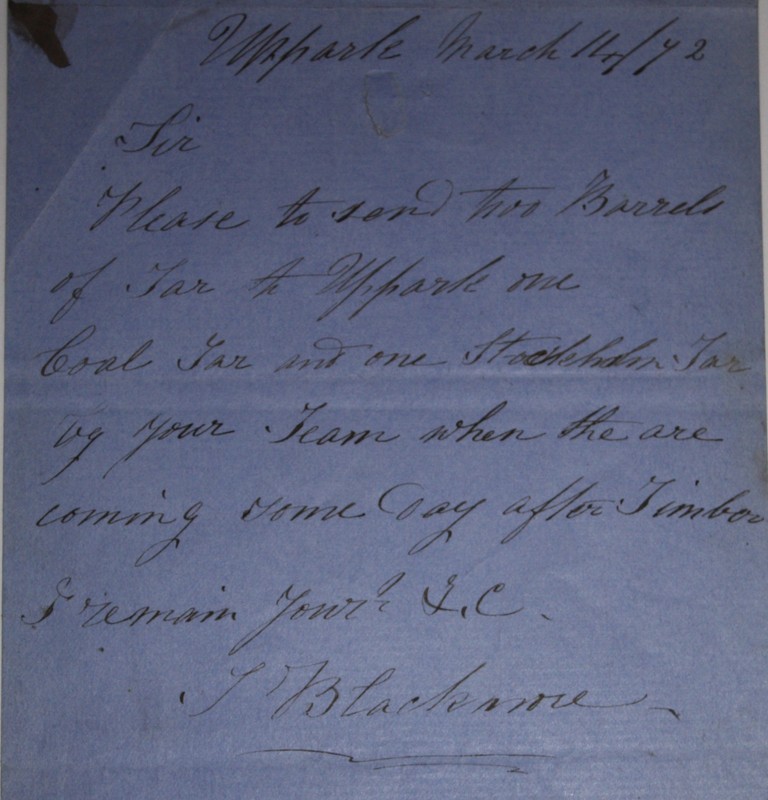 Uppark March 14/72
Sir
Please to send two Barrels
of Tar to Uppark one
Coal Tar and one Stockholm Tar
by your Team when the are
coming some Day after Timber
I remain Yours &.C.
J Blackmore